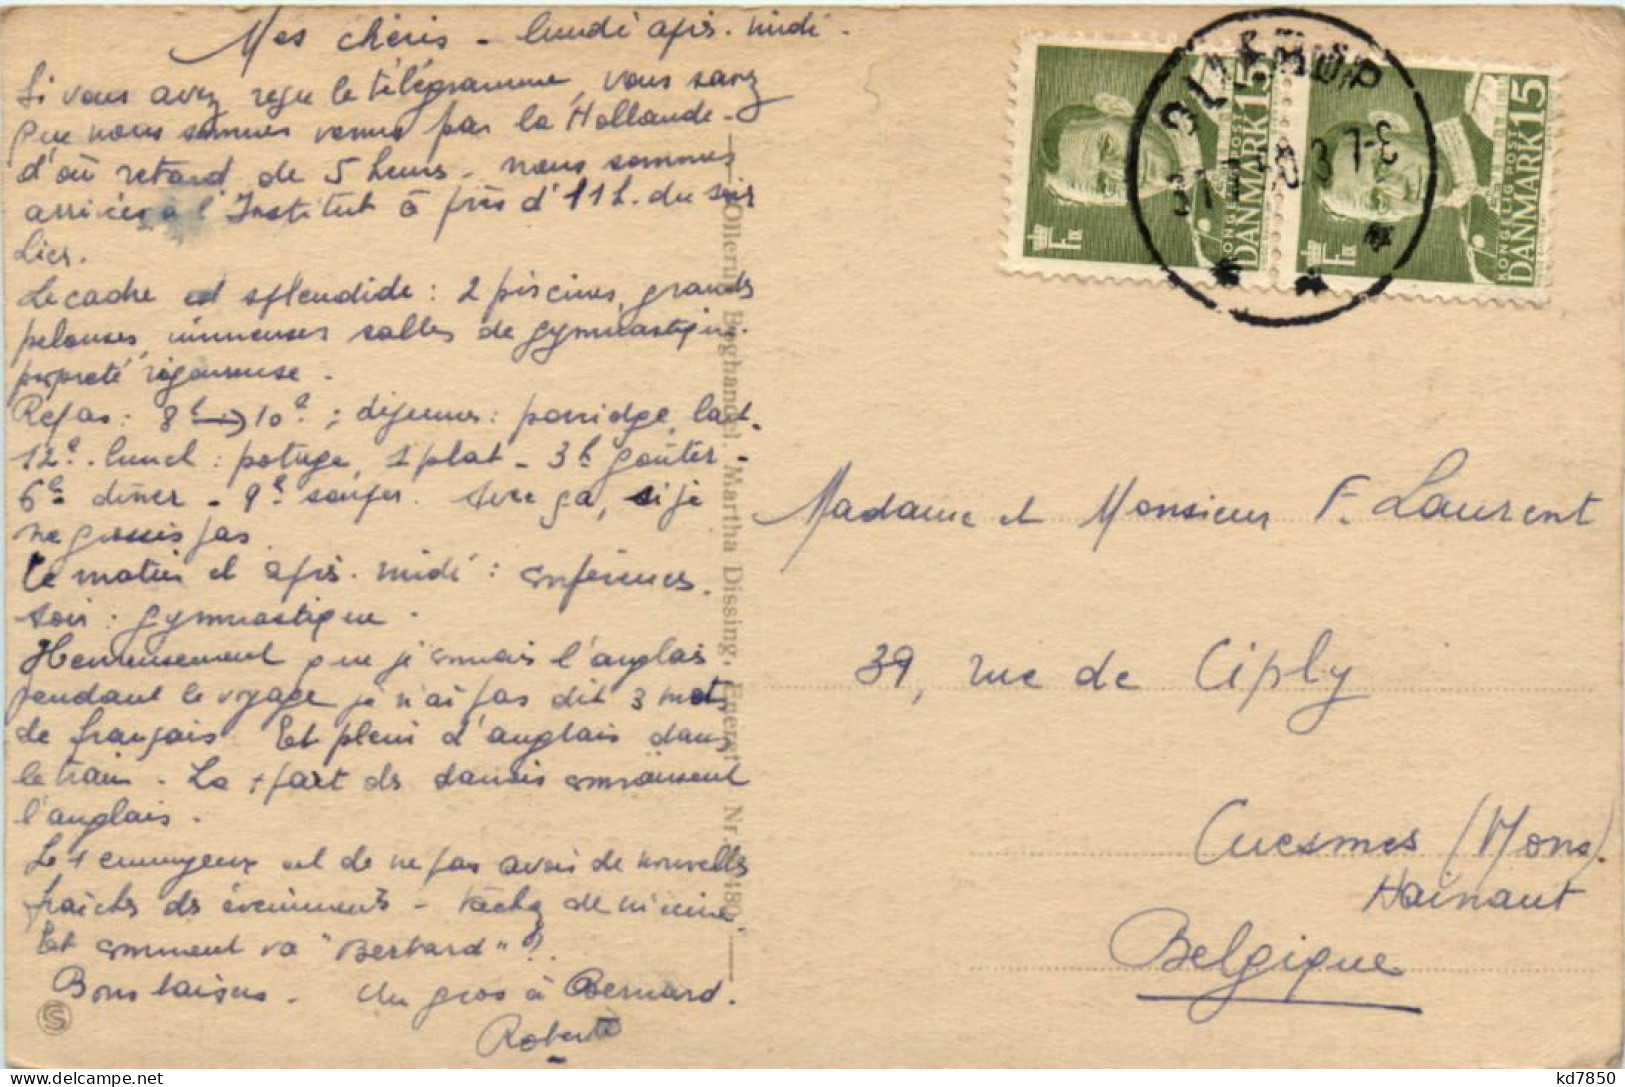 Mes chéris - lundi après-midi.
Si vous avez reçu le télégramme, vous savez
que nous sommes venus par la Hollande -
d'où retard de 5 heures - nous sommes
arrivés à l'Institut à près d'11 h. du soir
hier.
Le cadre est splendide : 2 piscines, grandes
pelouses, immenses salles de gymnastique.
propreté rigoureuse.
Repas : 8h → 10h ; déjeuner : porridge, lait.
12h. lunch : potage, 1 plat - 3h goûter -
6h dîner - 9h souper. Avec ça, si je
ne grossis pas
Le matin et après-midi : conférences.
soir : gymnastique.
Heureusement que je connais l'anglais
pendant le voyage je n'ai pas dit 3 mots
de français Et plein d'anglais dans
le train. La + part des danois connaissent
l'anglais.
Le + ennuyeux est de ne pas avoir de nouvelles
fraîches des événements - tâchez de m'écrire
Et comment va "Bestard" ?
Bons baisers. Un gros à Bernard.
Robert
S
Ollerup Boghandel. Martha Dissing. Eneret. Nr. 480
OLLERUP
31 7
DANMARK 15
KONGELIG POST
F IX
DANMARK 15
KONGELIG POST
F IX
Madame et Monsieur F. Laurent
39, rue de Ciply
Cuesmes (Mons).
Hainaut
Belgique
kd7850